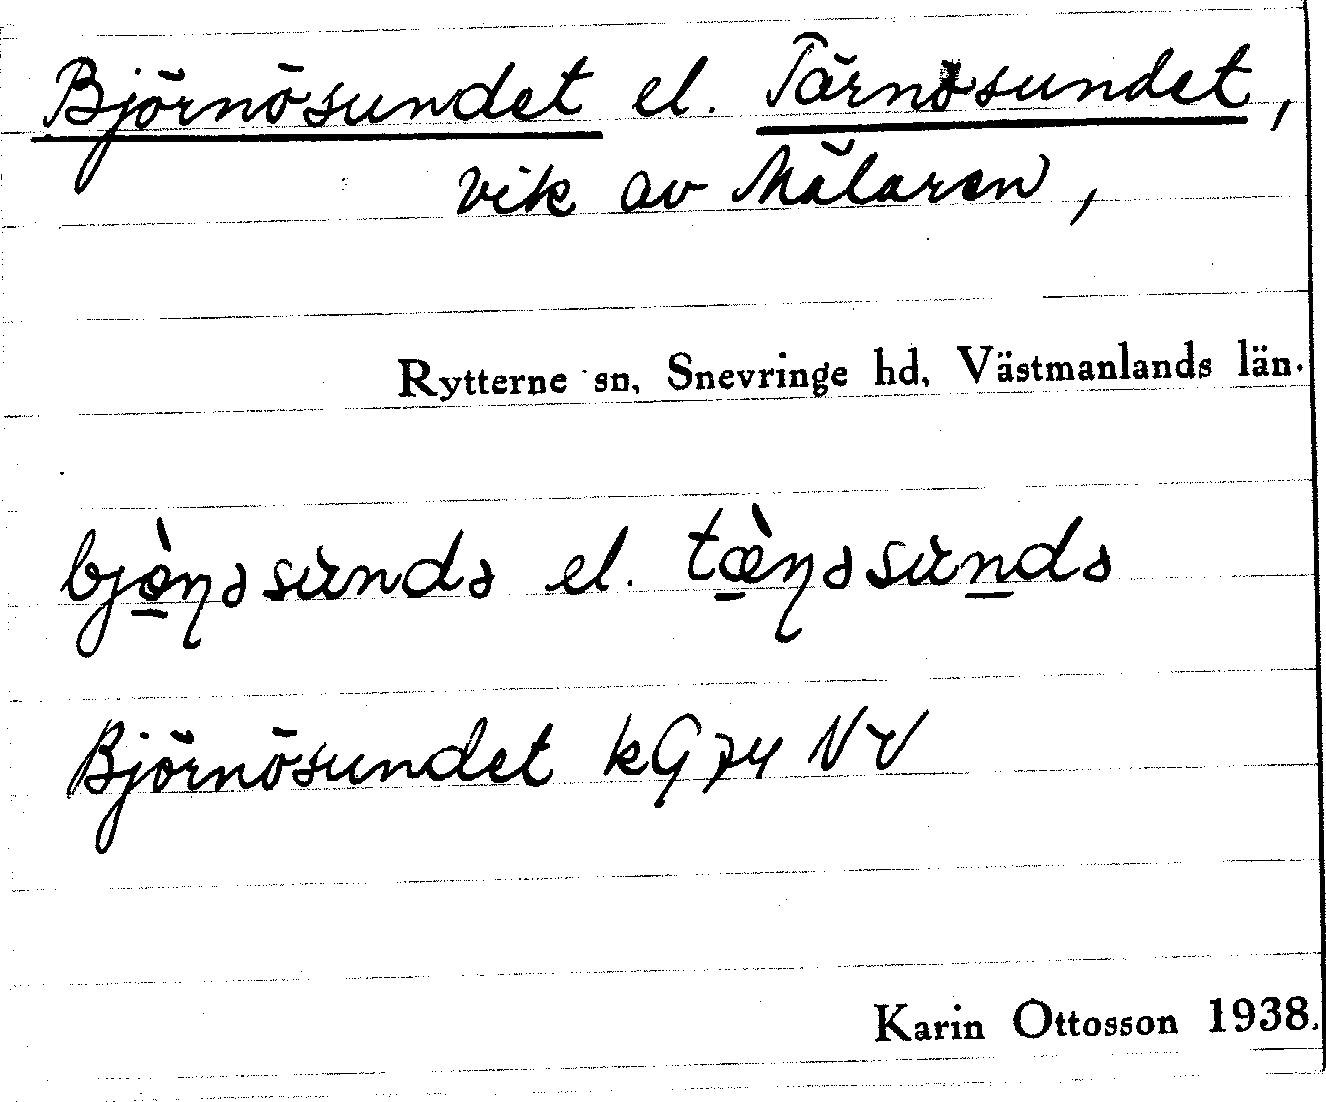 Björnösundet el. Tärnösundet,
vik av Mälaren,
Rytterne sn, Snevringe hd, Västmanlands län.
bjø̀ṇəsùndə el. tæ̀ṇəsùndə
Björnösundet kG74 NV
Karin Ottosson 1938.